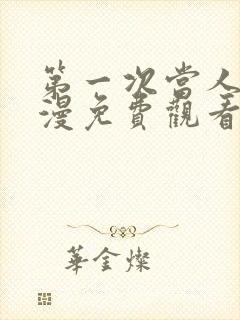 第一次當人
漫免費觀看
華金燦